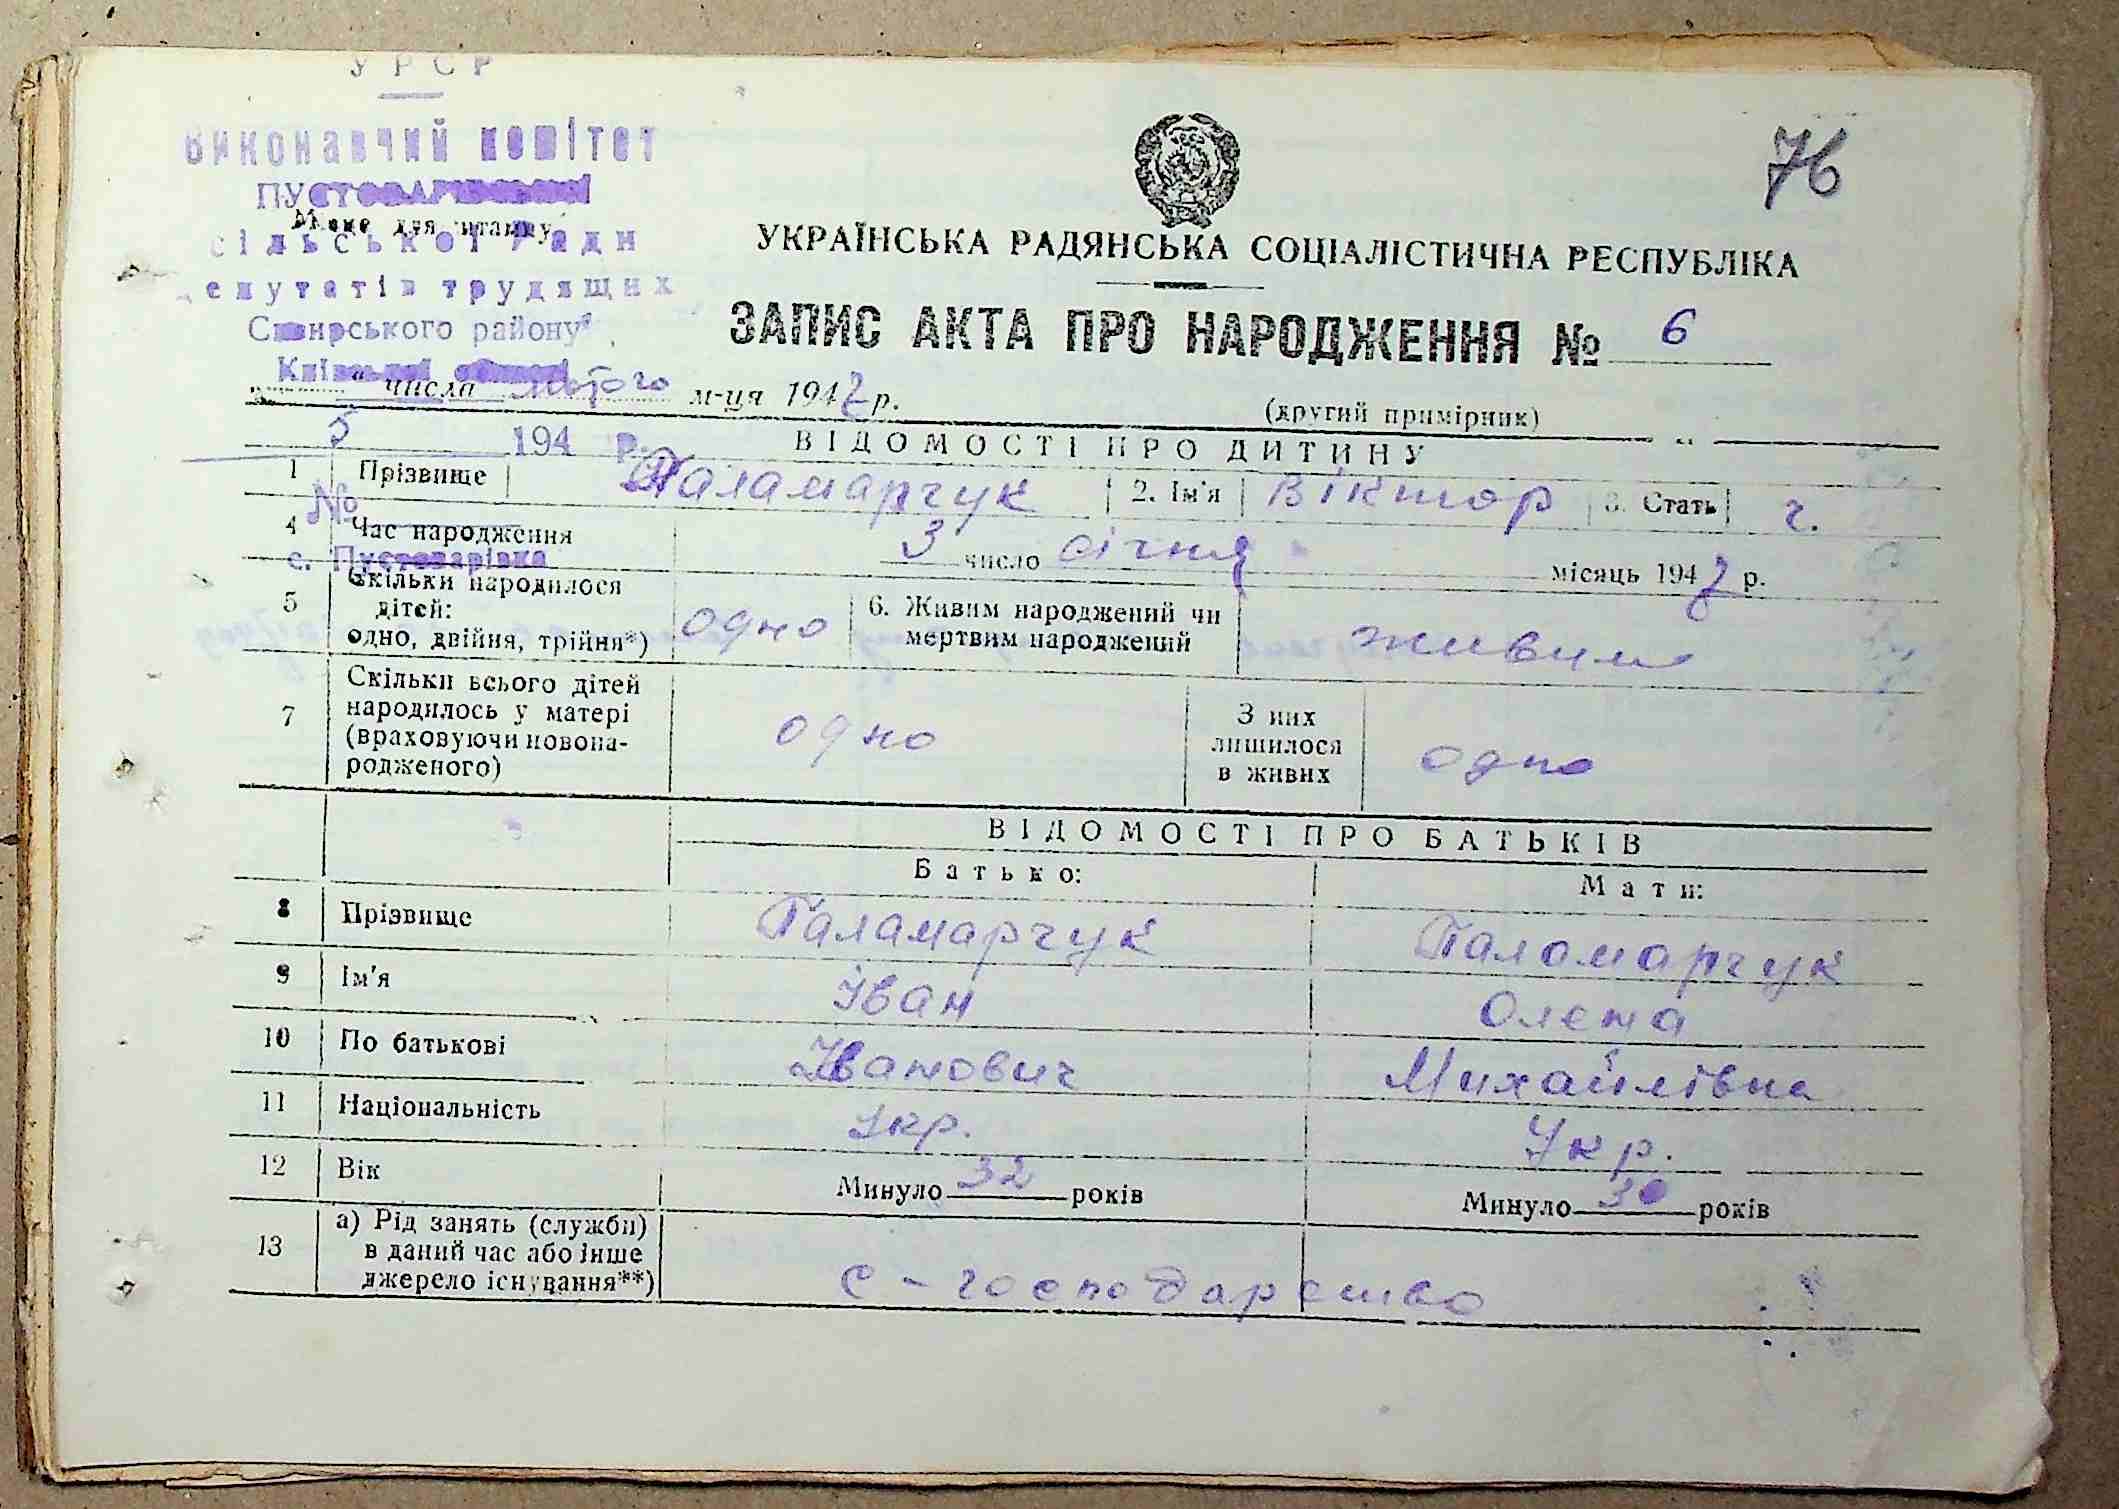 УРСР
Виконавчий комітет
ПУСТОВАРІВСЬКОЇ
Місце для штампу
сільської Ради
депутатів трудящих
Сквирського району
Київської області
76
УКРАЇНСЬКА РАДЯНСЬКА СОЦІАЛІСТИЧНА РЕСПУБЛІКА
ЗАПИС АКТА ПРО НАРОДЖЕННЯ № 6
" числа лютого м-ця 1947 р.
(другий примірник)
5 194 р.
ВІДОМОСТІ ПРО ДИТИНУ
1 Прізвище Паламарчук 2. Ім'я Віктор 3. Стать ч.
№
4 Час народження 3 число січня місяць 1947 р.
с. Пустоварівка
5 Скільки народилося дітей: одно, двійня, трійня*) одно 6. Живим народжений чи мертвим народжений живим
7 Скільки всього дітей народилось у матері (враховуючи новона-родженого) одно З них лишилося в живих одно
ВІДОМОСТІ ПРО БАТЬКІВ
Батько: Мати:
8 Прізвище Паламарчук Паламарчук
9 Ім'я Іван Олена
10 По батькові Іванович Михайлівна
11 Національність укр. Укр.
12 Вік Минуло 32 років Минуло 30 років
13 а) Рід занять (служби) в даний час або інше джерело існування**) с-господарство